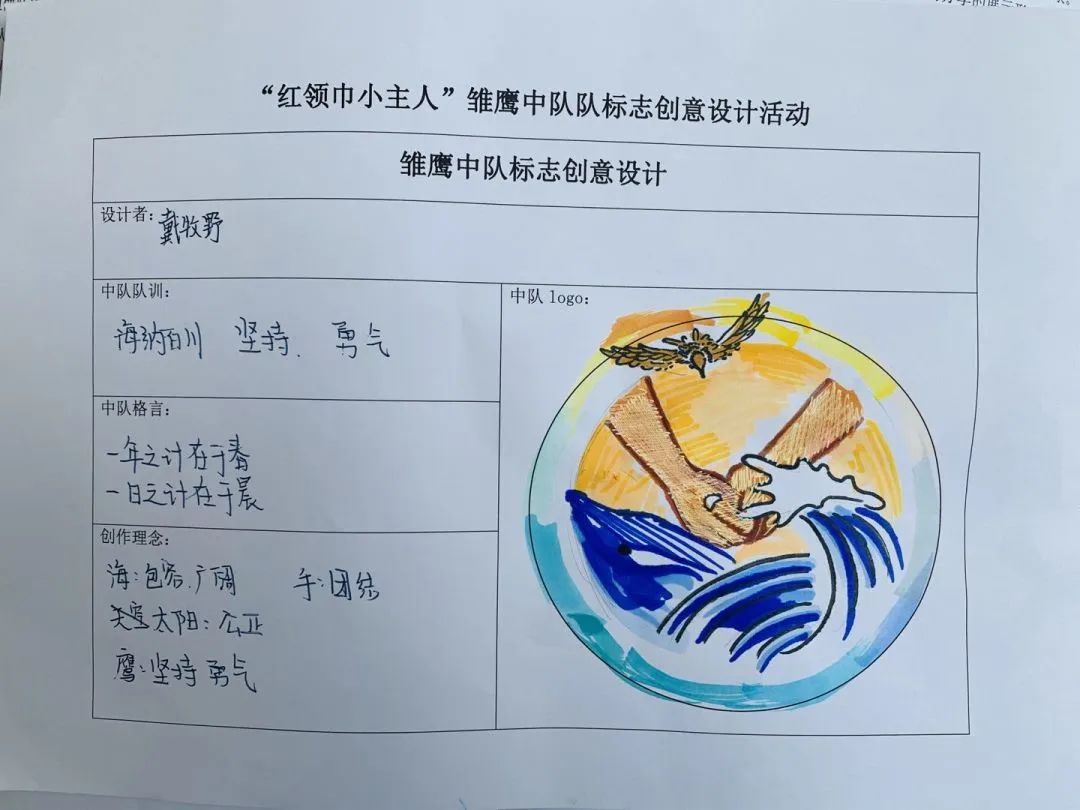 “红领巾小主人”雏鹰中队队标志创意设计活动
雏鹰中队标志创意设计
设计者：戴牧野
中队队训：
海纳百川 坚持、勇气
中队格言：
一年之计在于春
一日之计在于晨
创作理念：
海：包容、广阔 手：团结
天空太阳：公正
鹰：坚持 勇气
中队 logo：